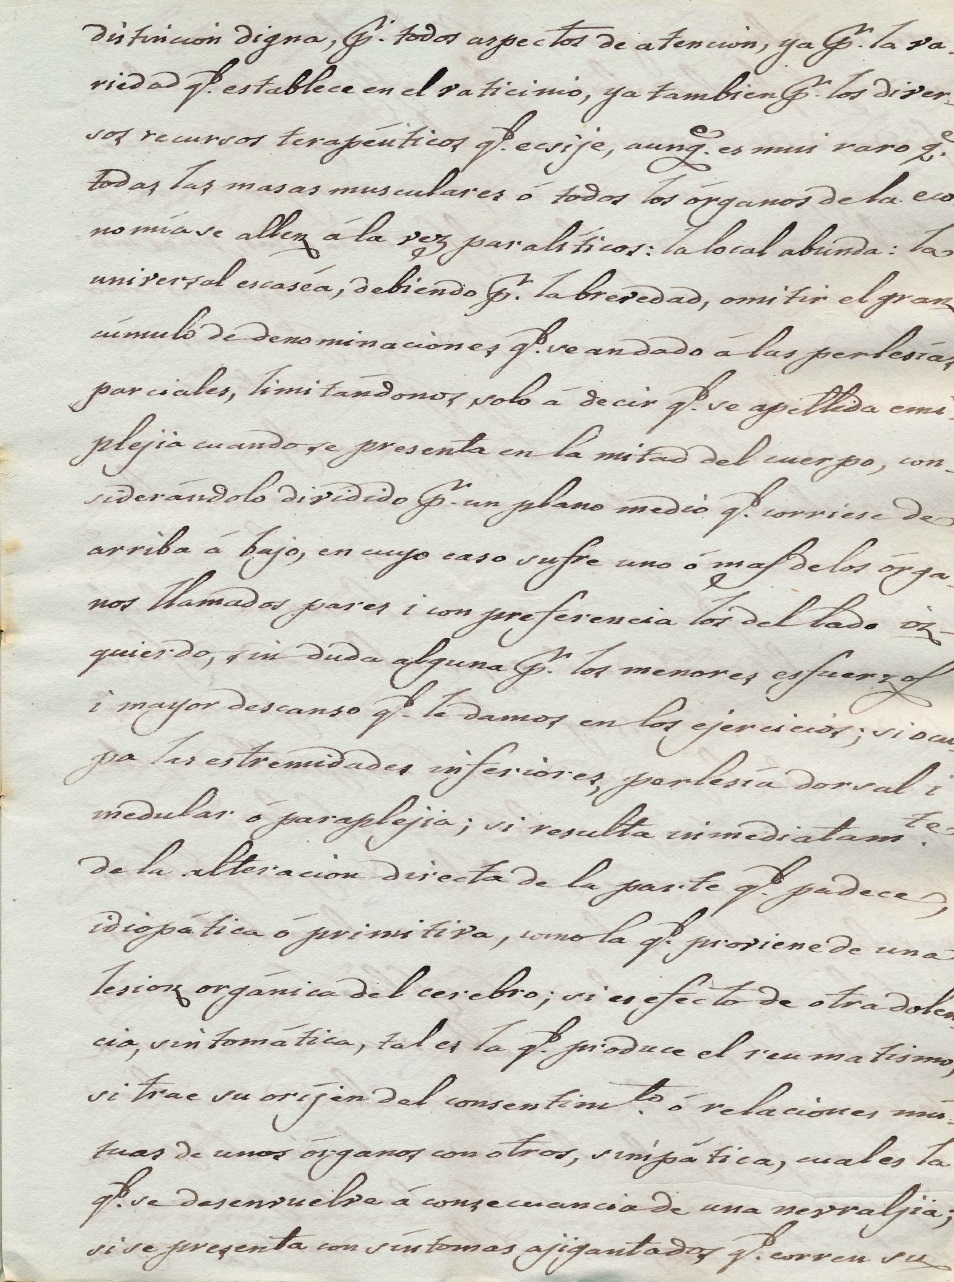 distincion digna, pr. todos aspectos de atencion, ya pr. la va-
riedad qe. establece en el vaticinio, ya tambien pr. los diver-
sos recursos terapéuticos qe. ecsije, aunqe. es mui raro qe.
todas las masas musculares ó todos los órganos de la eco
nomía se allen á la vez paralíticos: la local abúnda: la
universal escaséa, debiendo pr. la brevedad, omitir el gran
cúmulo de denominaciones qe. se an dado á las perlesías
parciales, limitándonos solo á decir qe. se apellida emi-
plejia cuando se presenta en la mitad del cuerpo, con-
siderándolo dividido pr. un plano medio qe. corriese de
arriba á bajo, en cuyo caso sufre uno ó mas de los órga-
nos llamados pares i con preferencia los del lado iz-
quierdo, sin duda alguna pr. los menores esfuerzos
i mayor descanso qe. le damos en los ejercicios; si ocu
pa las estremidades inferiores, perlesía dorsal i
medular ó paraplejia; si resulta inmediatamte.
de la alteracion directa de la parte qe. padece,
idiopática ó primitiva, como la qe. proviene de una
lesion orgánica del cerebro; si es efecto de otra dolen
cia, sintomática, tal es la qe. produce el reumatismo,
si trae su oríjen del consentimto. ó relaciones mú-
tuas de unos órganos con otros, simpática, cual es la
qe. se desenvuelve á consecuancia de una nevraljia;
si se presenta con síntomas ajigantados qe. corren su